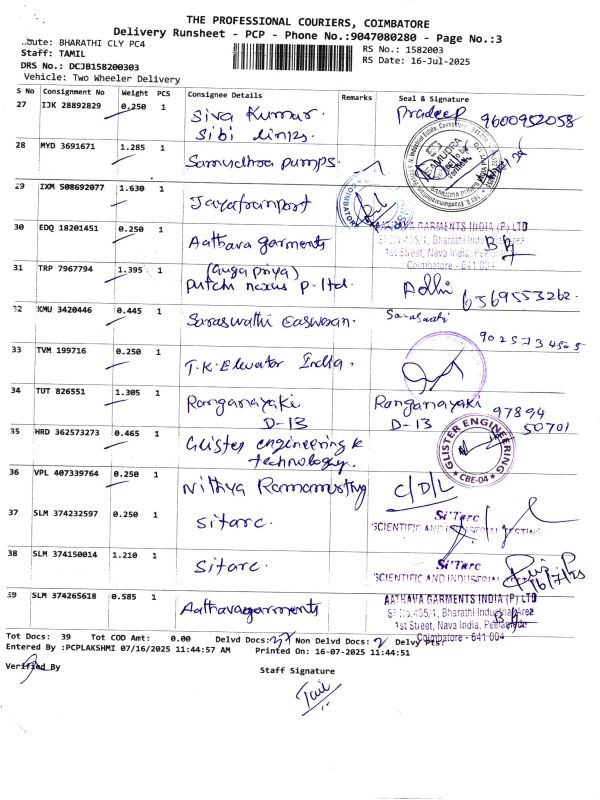 THE PROFESSIONAL COURIERS, COIMBATORE
Delivery Runsheet - PCP - Phone No.:9047080280 - Page No.:3
oute: BHARATHI CLY PC4
RS No.: 1582003
Staff: TAMIL
RS Date: 16-Jul-2025
DRS No.: DCJB158200303
Vehicle: Two Wheeler Delivery
S No Consignment No Weight PCS Consignee Details Remarks Seal & Signature
27 IJK 28892829 0.250 1 Siva Kumar. Pradeep 9600952058
Sibi
28 MYD 3691671 1.285 1 Samudhra pumps. SAMUDRA
29 IXM 508692077 1.630 1 Jayatransport
30 EDQ 18201451 0.250 1 Aathava garments AATHAVA GARMENTS INDIA (P) LTD
SF No.405/1, Bharathi Industrial Area
1st Street, Nava India,
Coimbatore - 641 004
31 TRP 7967794 1.395 1 P. ltd. Adhi 6369553262
32 KMU 3420446 0.445 1 Saraswathi Easwaran. Saraswathi
33 TVM 199716 0.250 1 T.K. Elevator India.
34 TUT 826551 1.305 1 Ranganayaki Ranganayaki 97894
D-13 D-13 50701
35 HRD 362573273 0.465 1 Glister engineering & GLISTER ENGINEERING
technology. CBE-04
36 VPL 407339764 0.250 1 Nithya Ramamurthy C/D/L
37 SLM 374232597 0.250 1 Sitarc. Si'Tarc
SCIENTIFIC AND INDUSTRIAL TESTING
38 SLM 374150014 1.210 1 Sitarc. Si'Tarc
SCIENTIFIC AND INDUSTRIAL 16/7/25
39 SLM 374265618 0.585 1 Aathavagarments AATHAVA GARMENTS INDIA (P) LTD
SF No.405/1, Bharathi Industrial Area
1st Street, Nava India, Peelamedu
Coimbatore - 641 004
Tot Docs: 39 Tot COD Amt: 0.00 Delvd Docs: 37 Non Delvd Docs: 2 Delvy Pts:
Entered By :PCPLAKSHMI 07/16/2025 11:44:57 AM Printed On: 16-07-2025 11:44:51
Verified By
Staff Signature